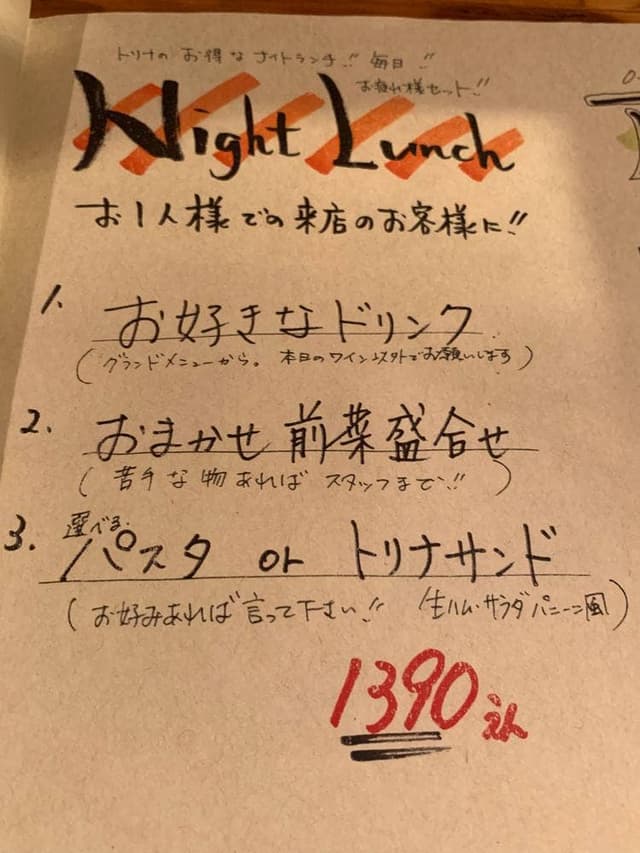 トリナの お得な ナイトランチ!! 毎日!!
お疲れ様セット!!
Night Lunch
お1人様での来店のお客様に!!
1. お好きなドリンク
(グランドメニューから。 本日のワイン以外でお願いします)
2. おまかせ 前菜盛合せ
(苦手な物あれば スタッフまで!!)
3. 選べる パスタ or トリナサンド
(お好みあれば言って下さい!! 生ハム・サラダパニーニ風)
1390えん